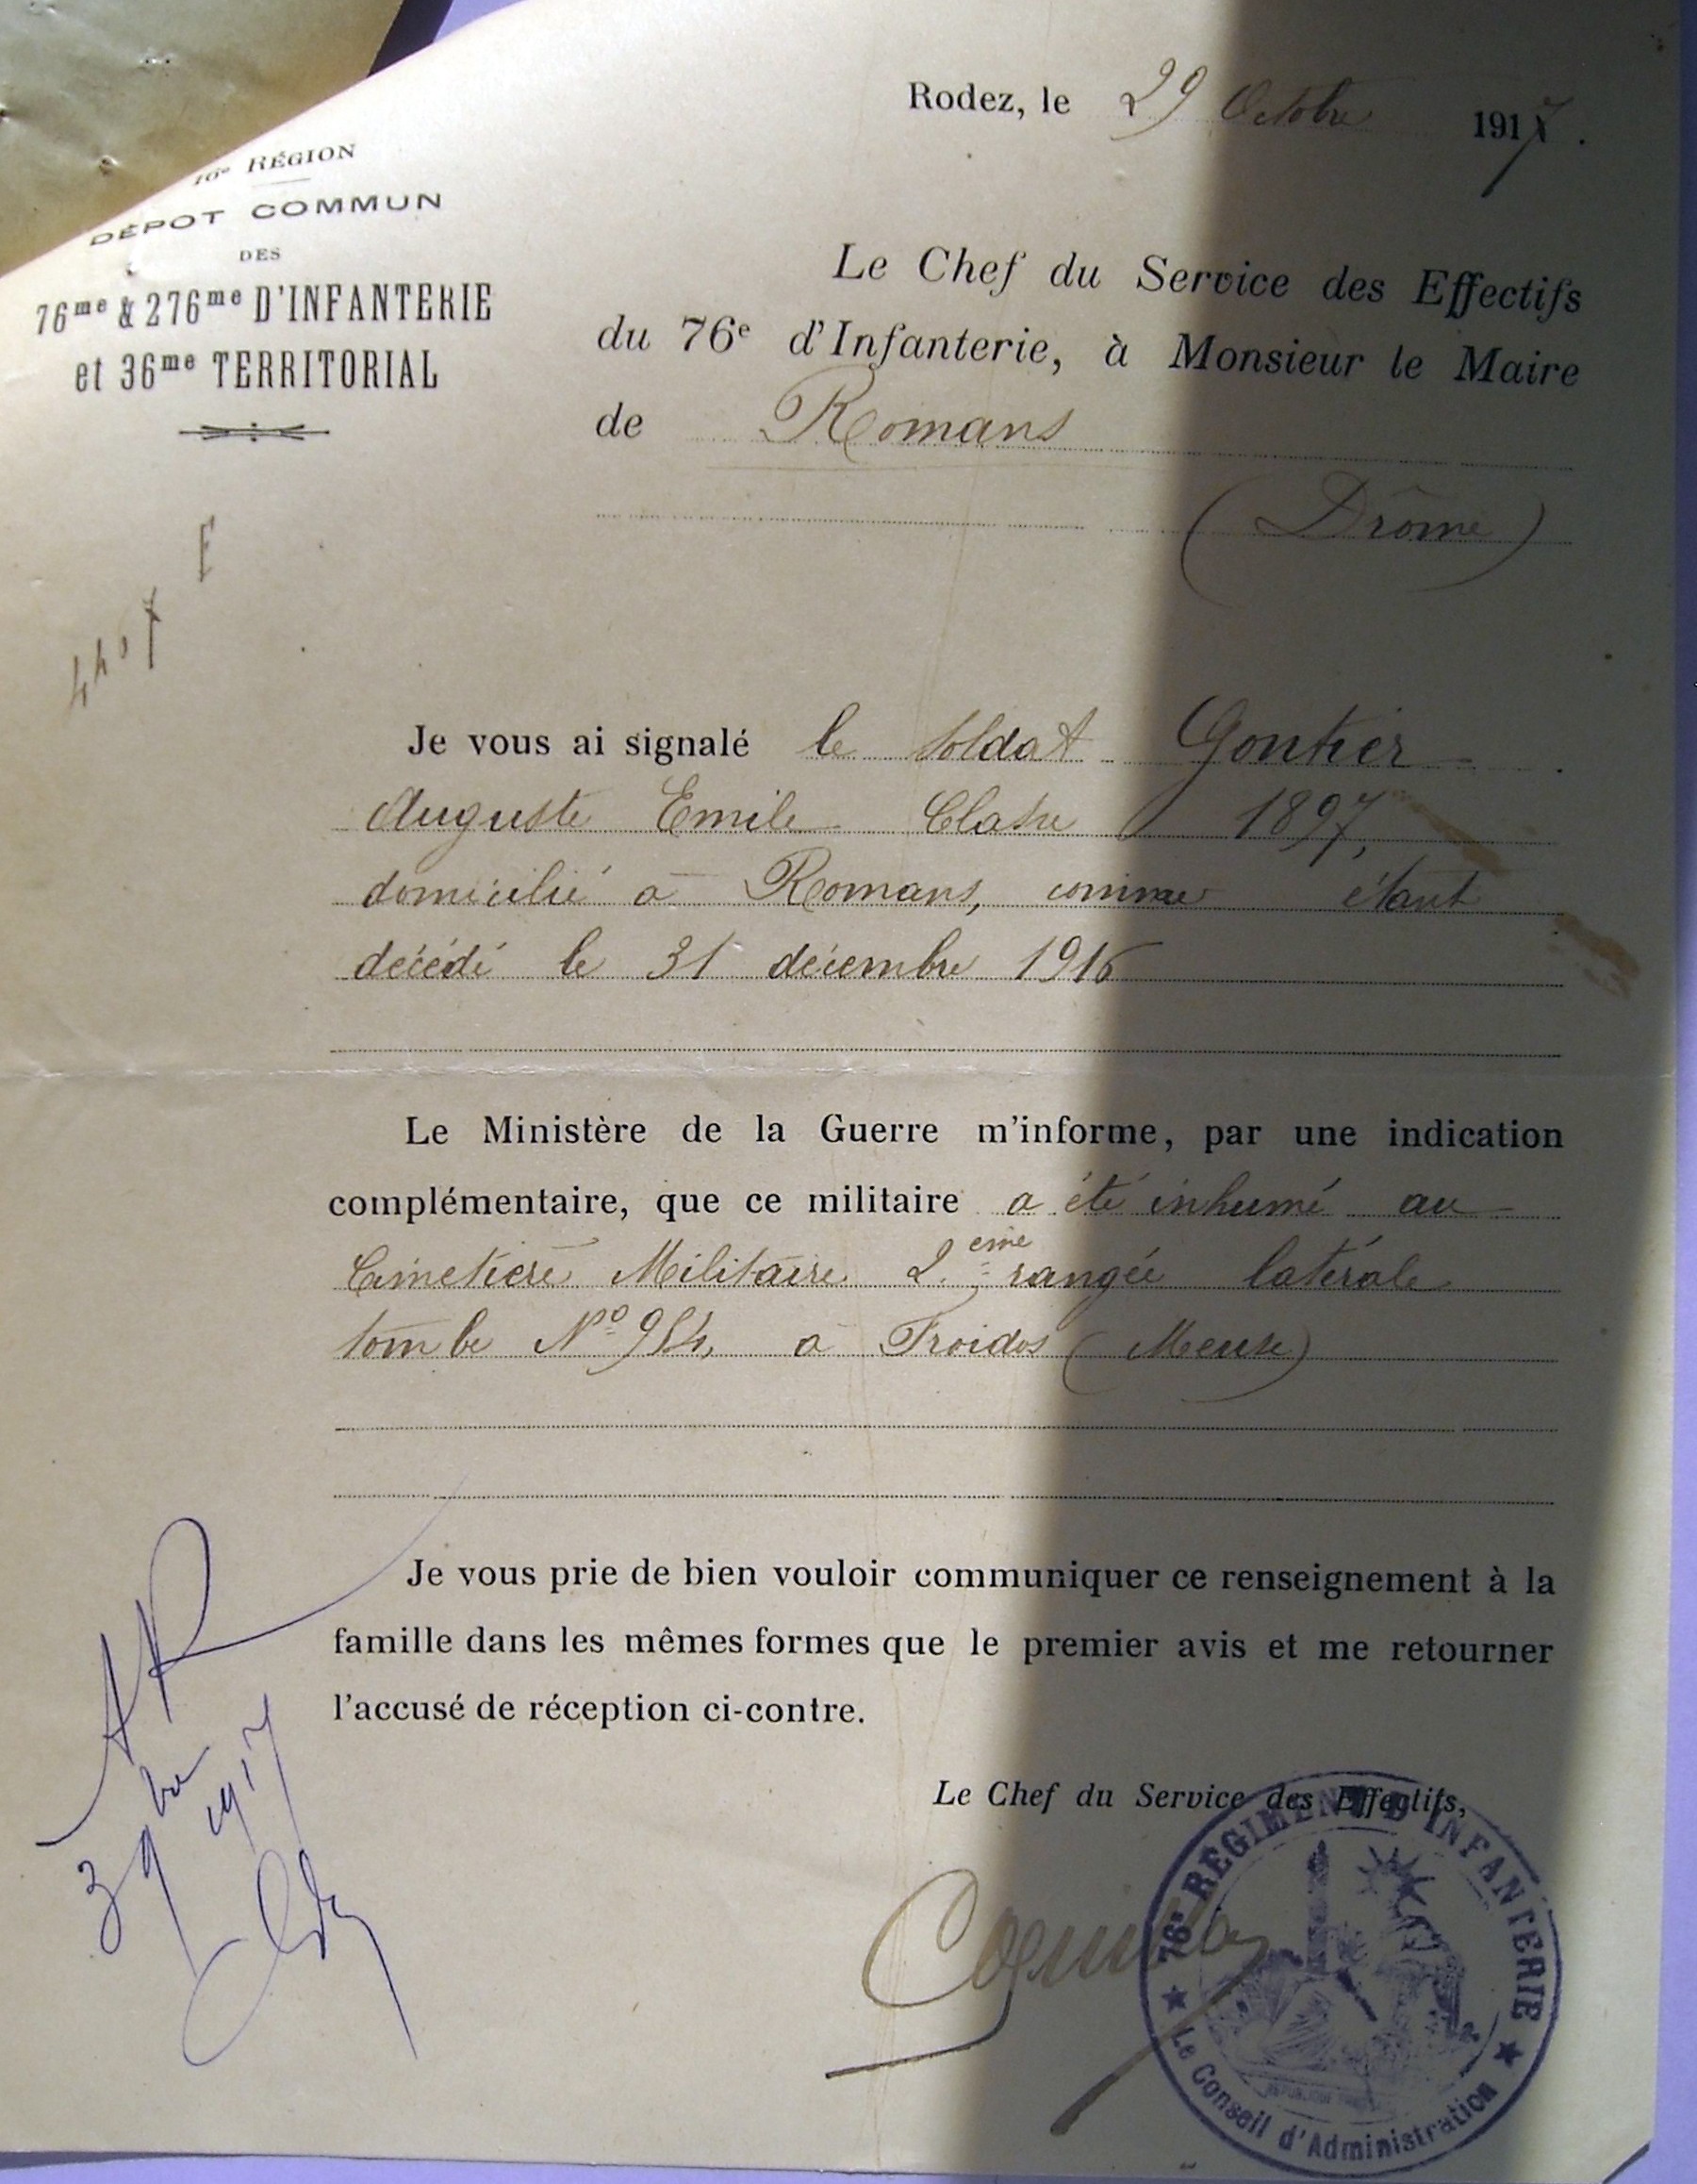 Rodez, le 29 Octobre 1917.
16e RÉGION
DÉPOT COMMUN
DES
76me & 276me D'INFANTERIE
et 36me TERRITORIAL
Le Chef du Service des Effectifs
du 76e d'Infanterie, à Monsieur le Maire
de Romans
(Drôme)
E
Je vous ai signalé le soldat Gontier
Auguste Emile Classe 1897,
domicilié à Romans, comme étant
décédé le 31 décembre 1916
Le Ministère de la Guerre m'informe, par une indication
complémentaire, que ce militaire a été inhumé au
Cimetière Militaire 2.ème rangée latérale
tombe No 984, à Froidos (Meuse)
Je vous prie de bien vouloir communiquer ce renseignement à la
famille dans les mêmes formes que le premier avis et me retourner
l'accusé de réception ci-contre.
AR
3 9bre 1917
Le Chef du Service des Effectifs,
76e RÉGIMENT D'INFANTERIE
Le Conseil d'Administration